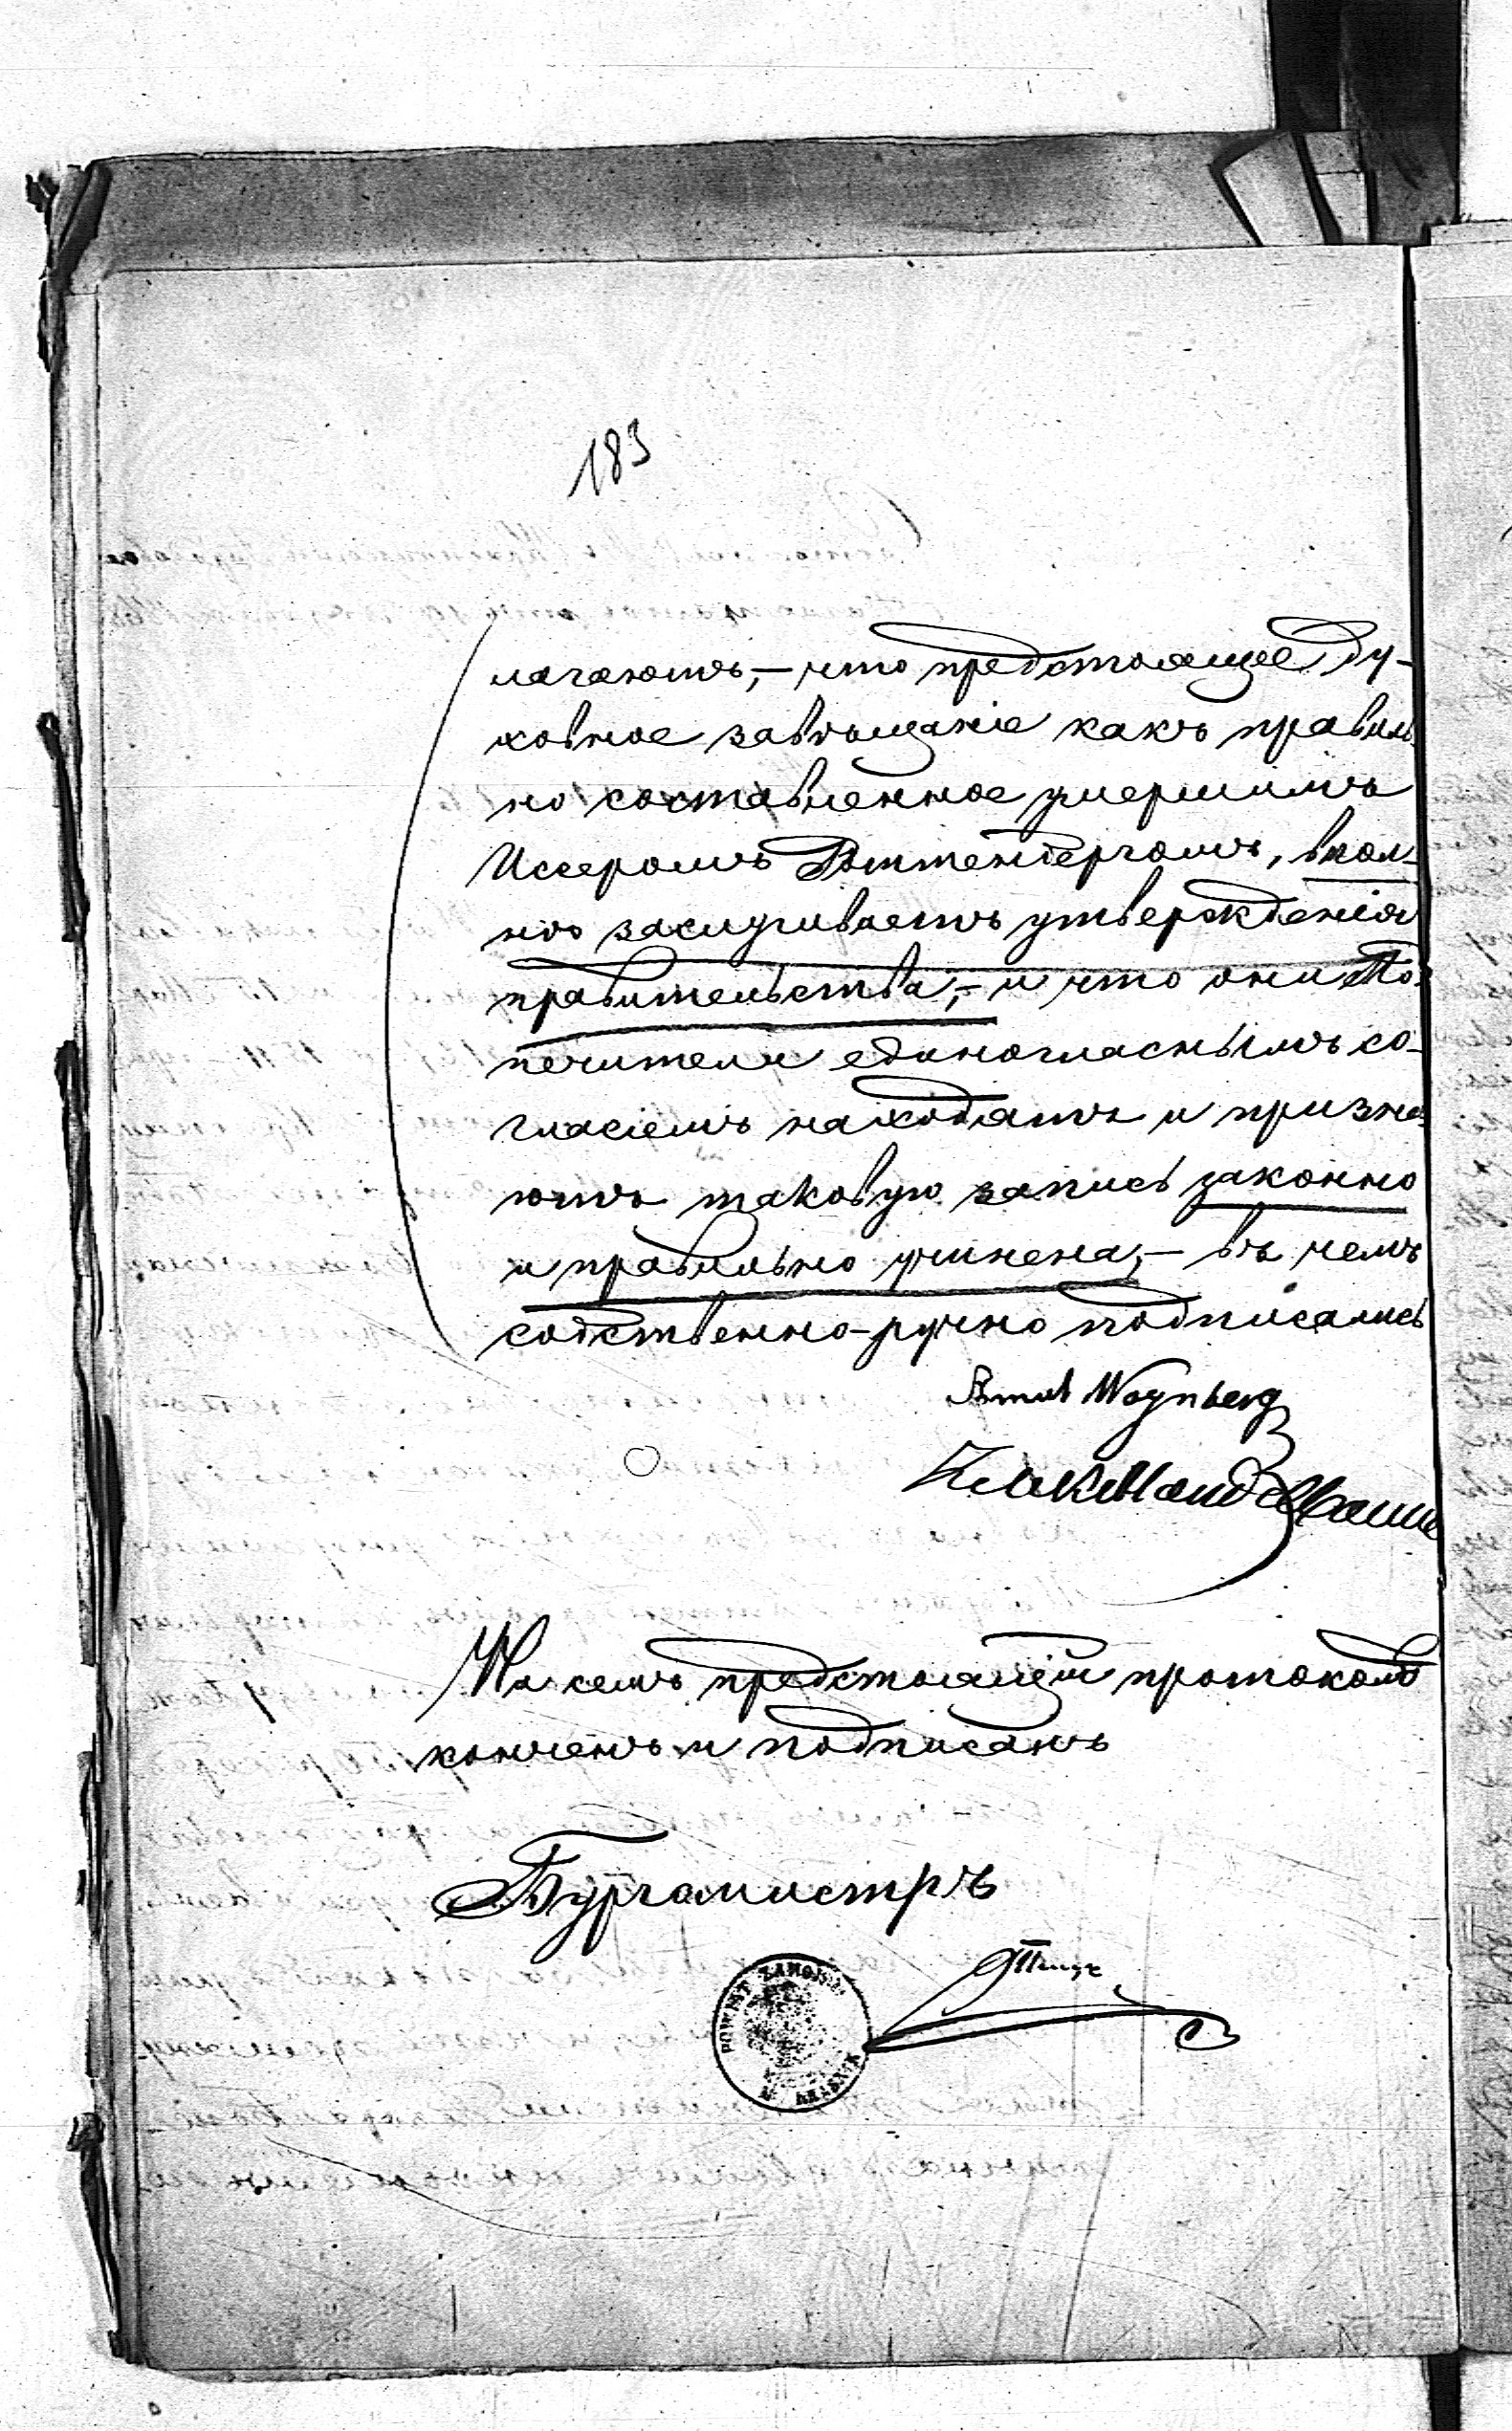 183
лагаютъ,- что предстоящее ду-
ховное завѣщаніе какъ правиль
но составленное умершимъ
Иссеромъ Роттенбергомъ, впол-
нѣ заслуживаетъ утвержденія
правительства,- и что они По-
печители единогласнымъ со-
гласіемъ находятъ и призна-
ютъ таковую запись законно
и правильно учинена,- въ чемъ
собственно-ручно подписались
Woynberg
На семъ предстоящій протоколъ
конченъ и подписанъ
Бургомистръ
POWIAT ZAMOJSKI